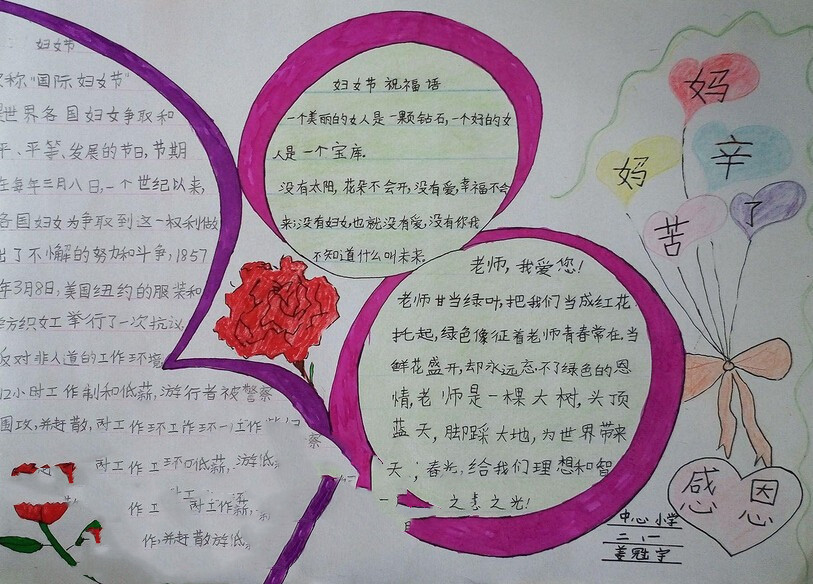 妇女节
称"国际妇女节"
世界各国妇女争取和
平、平等、发展的节日,节期
在每年三月八日,一个世纪以来,
各国妇女为争取到这一权利做
出了不懈的努力和斗争,1857
年3月8日,美国纽约的服装和
纺织女工举行了一次抗议
反对非人道的工作环境
12小时工作制和低薪,游行者被警察
围攻,并赶散,
察
工作
作,并赶散游低
妇女节祝福语
一个美丽的女人是一颗钻石,一个好的女
人是一个宝库.
没有太阳,花朵不会开,没有爱,幸福不会
来;没有妇女,也就没有爱,没有你我
不知道什么叫未来.
老师,我爱您!
老师甘当绿叶,把我们当成红花
托起,绿色像征着老师青春常在.当
鲜花盛开,却永远忘不了绿色的恩
情,老师是一棵大树,头顶
蓝天,脚踩大地,为世界带来
天;春光,给我们理想和智
之志之光!
妈
妈
辛
苦
了
感恩
中心小学
二、一
姜胜宇